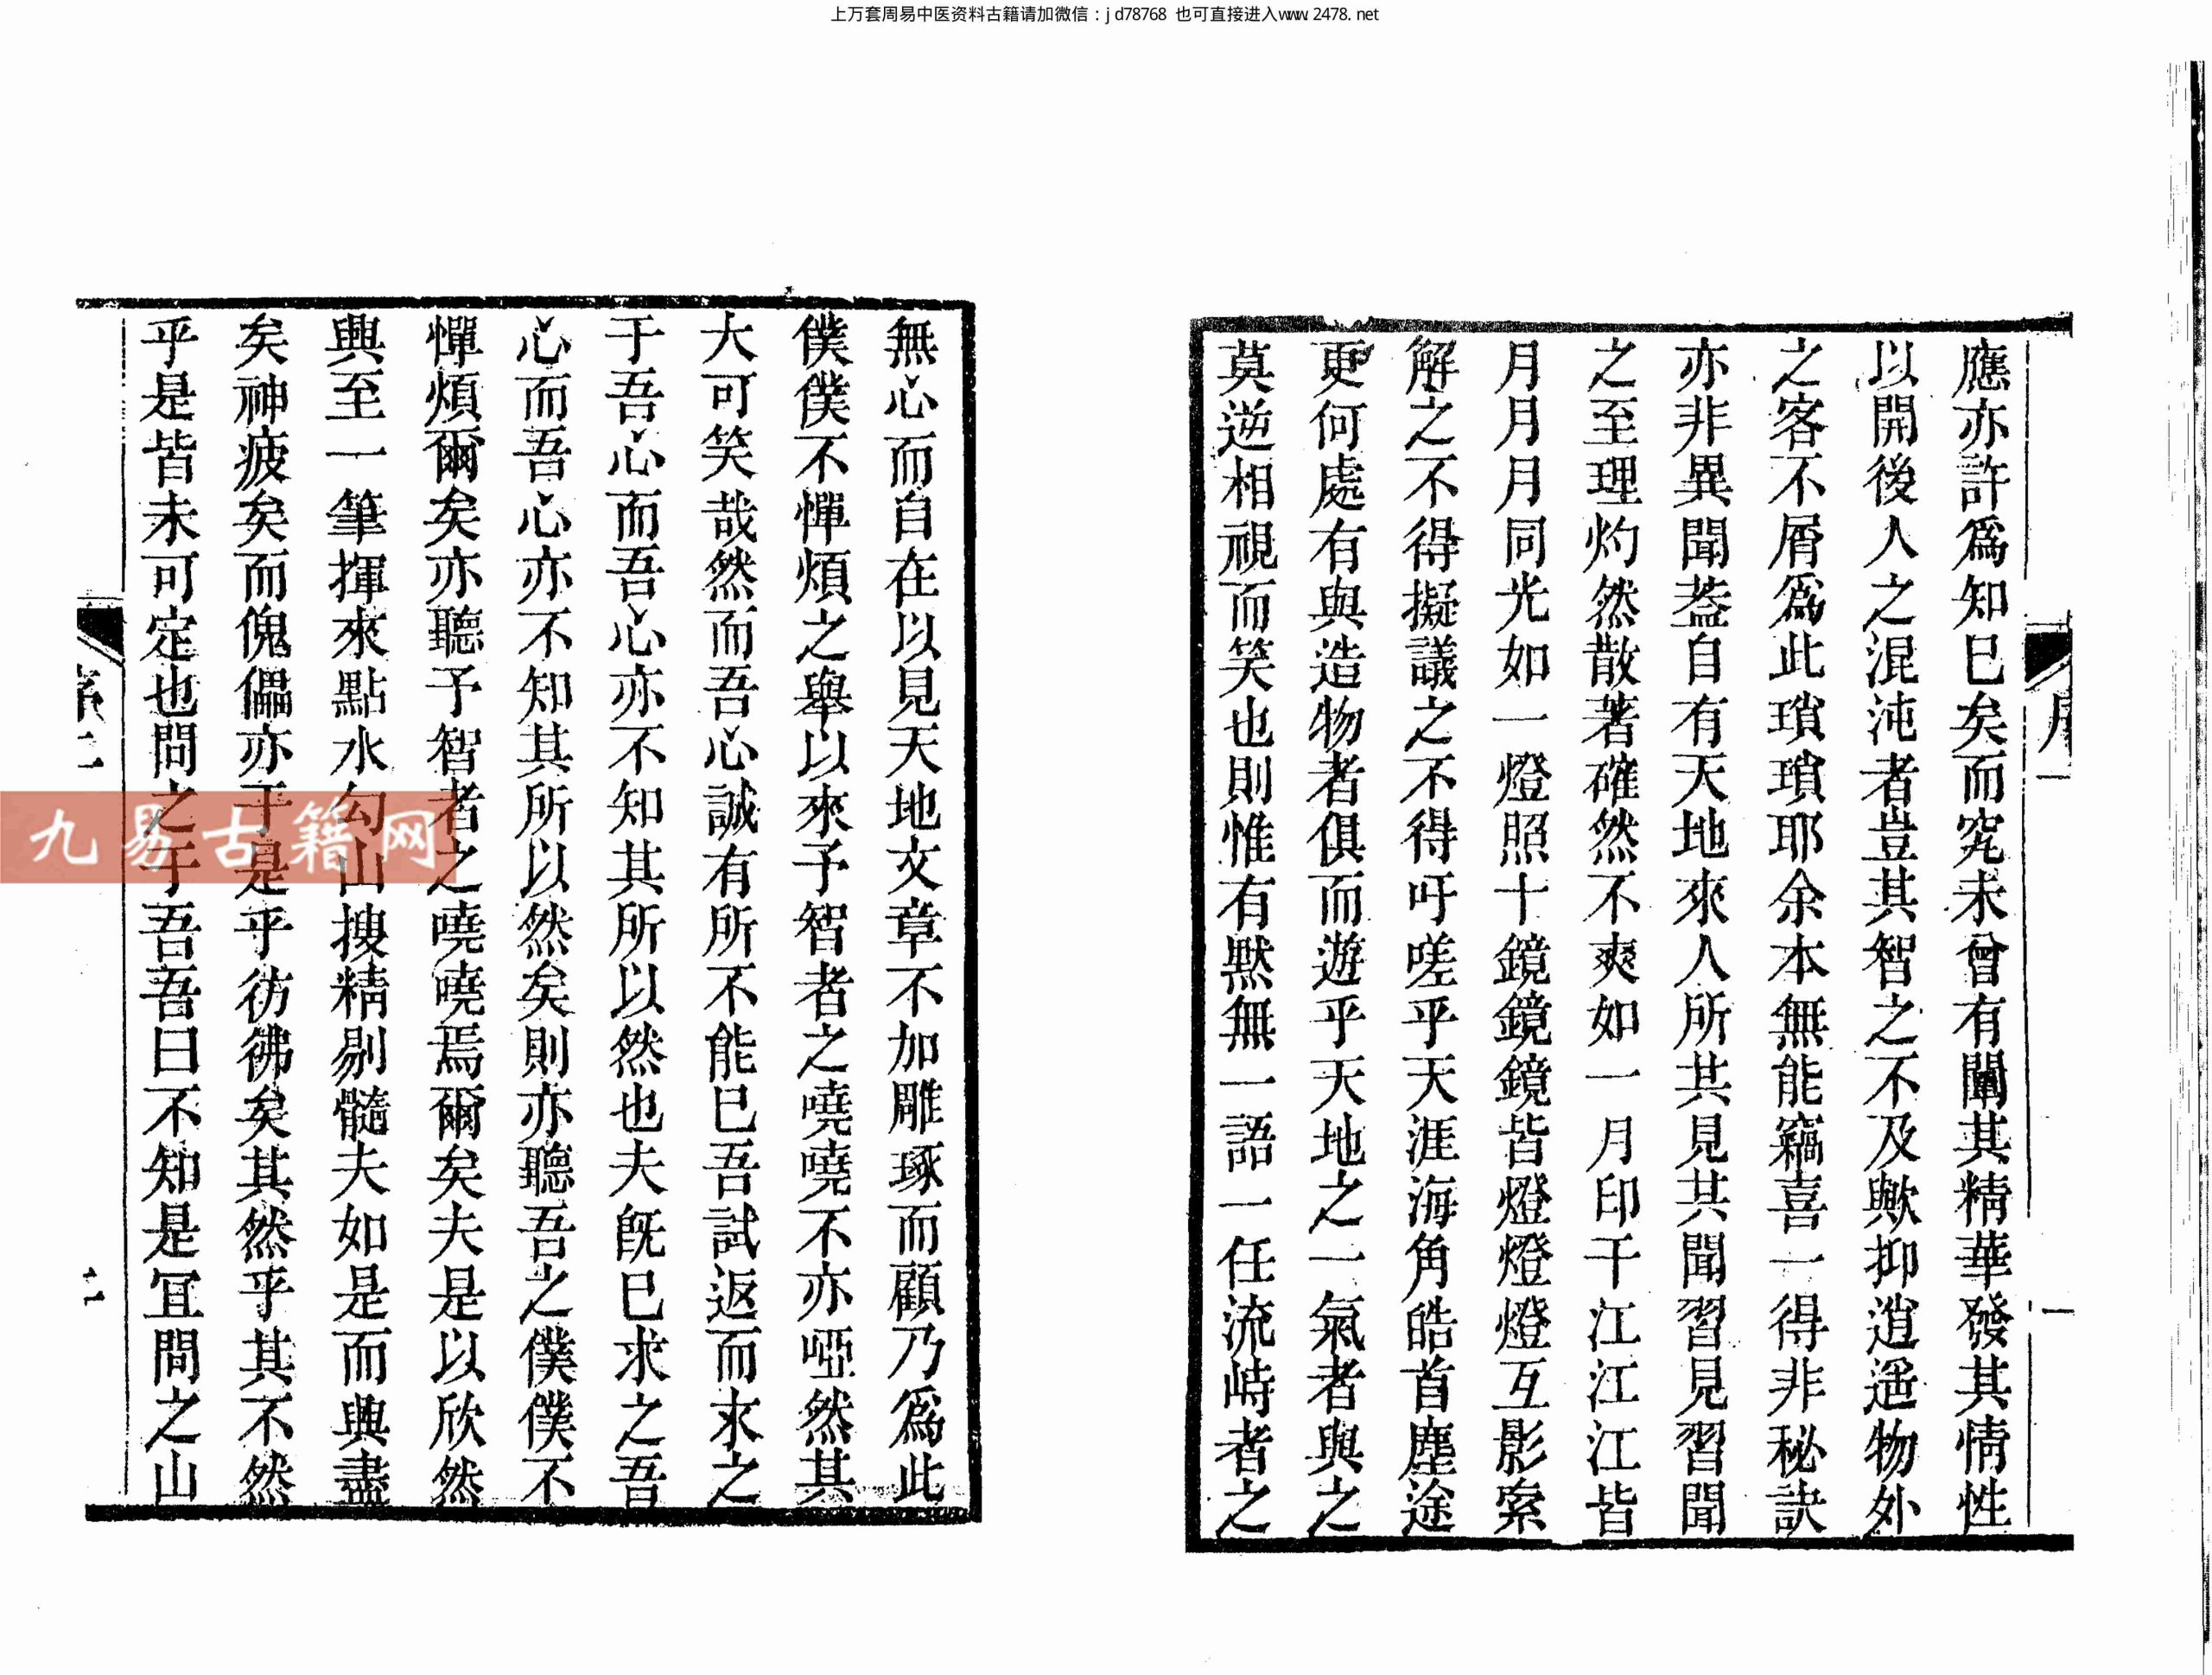 上万套周易中医资料古籍请加微信：jd78768 也可直接进入www.2478.net
序 一
一
應亦許爲知巳矣而究未曾有闡其精華發其情性
以開後人之混沌者豈其智之不及歟抑逍遥物外
之客不屑爲此瑣瑣耶余本無能竊喜一得非秘訣
亦非異聞葢自有天地來人所共見共聞習見習聞
之至理灼然散著確然不爽如一月印千江江江皆
月月月同光如一燈照十鏡鏡鏡皆燈燈燈互影索
解之不得擬議之不得吁嗟乎天涯海角皓首塵途
更何處有與造物者俱而遊乎天地之一氣者與之
莫逆相視而笑也則惟有默無一語一任流峙者之
無心而自在以見天地文章不加雕琢而顧乃爲此
僕僕不憚煩之舉以來予智者之嘵嘵不亦啞然其
大可笑哉然而吾心誠有所不能巳吾試返而求之
于吾心而吾心亦不知其所以然也夫旣巳求之吾
心而吾心亦不知其所以然矣則亦聽吾之僕僕不
憚煩爾矣亦聽予智者之嘵嘵焉爾矣夫是以欣然
興至一筆揮來點水勾山搜精剔髓夫如是而興盡
矣神疲矣而傀儡亦于是乎彷彿矣其然乎其不然
乎是皆未可定也問之于吾吾曰不知是宜問之山
序 二
九易古籍网